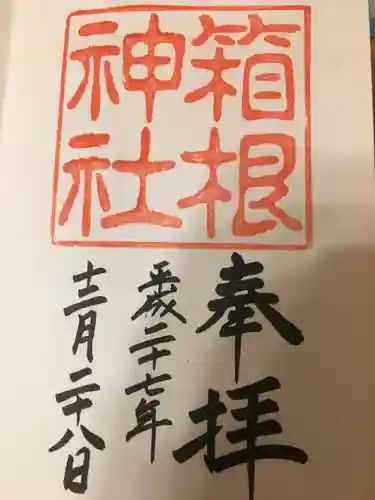 箱根
神社
奉拝
平成二十七年
十二月二十八日